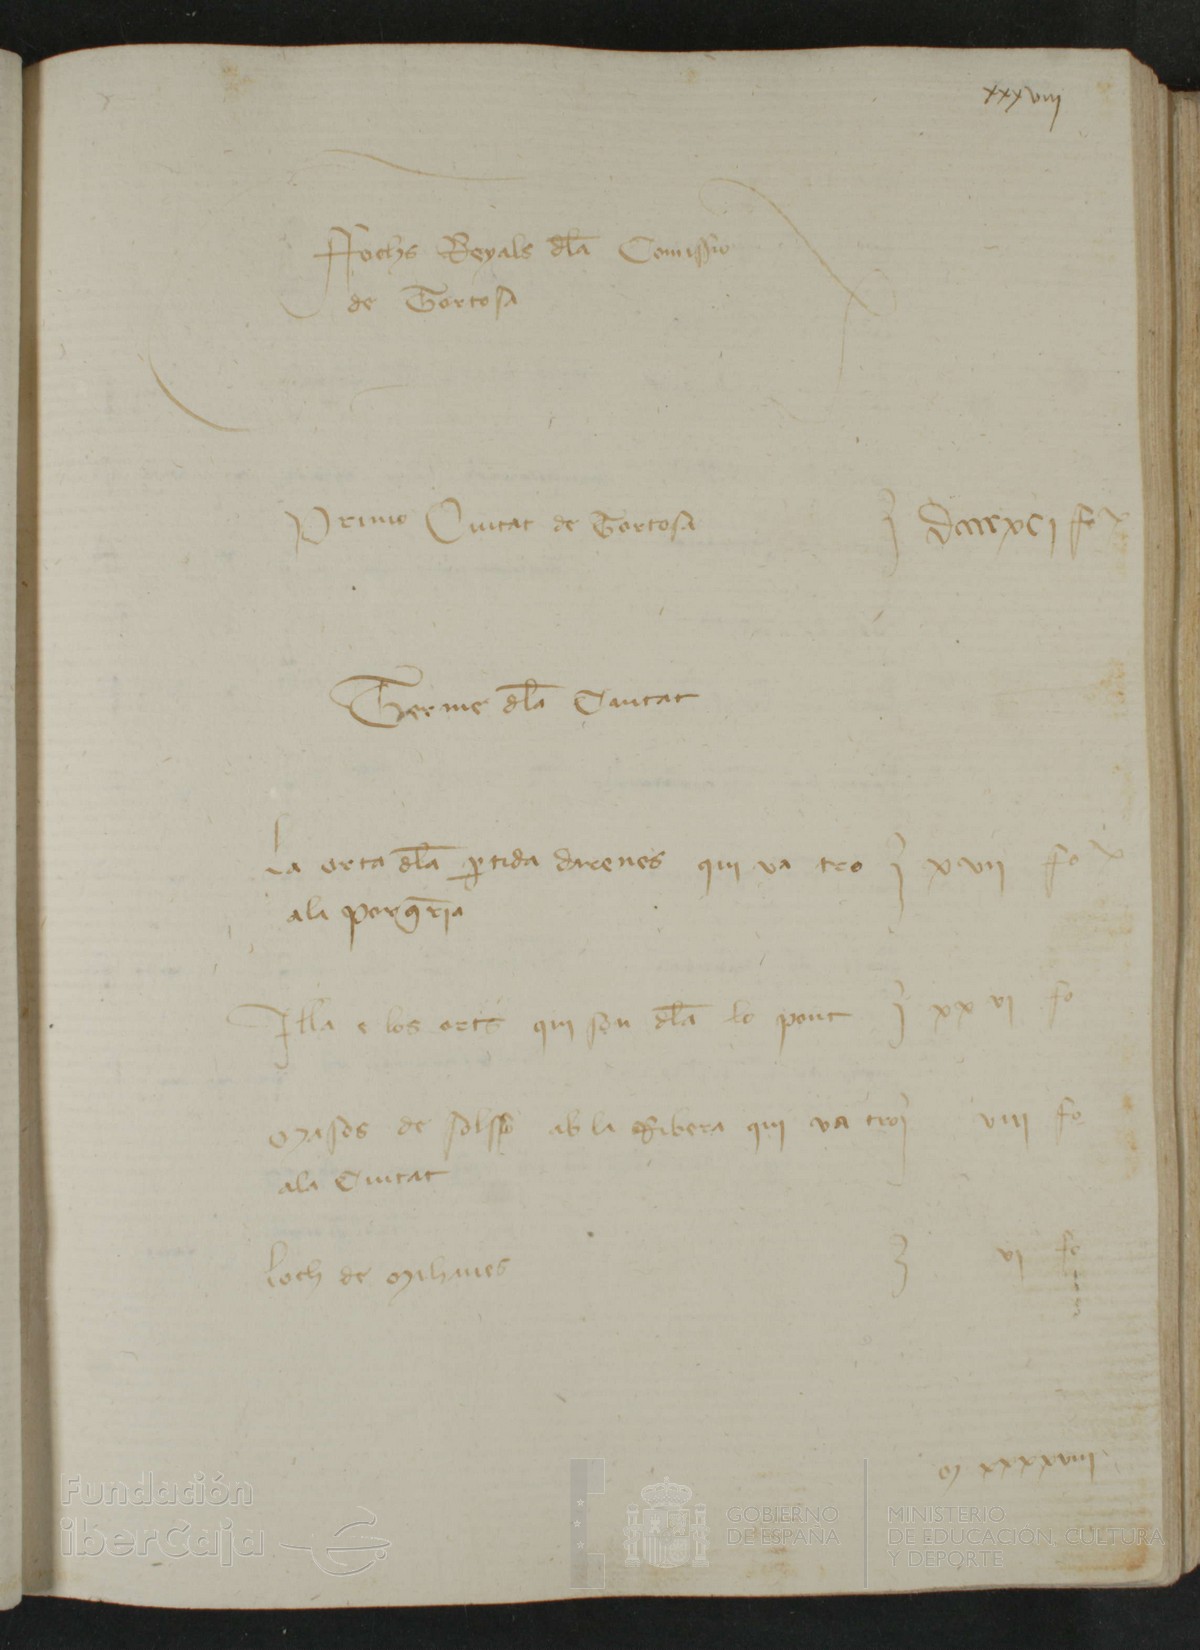 xxxviii
Ffochs Reyals dla Comissio
de Tortosa
Primo Ciutat de Tortosa ] fo
Terme dla Ciutat
La orta dla ptida darenes qui va tro ] xvii fo
ala
Illa e los orts qui son dla lo pont ] xxvi fo
Masos de ab la Ribera qui va tro ] viii fo
ala Ciutat
Loch de ] vi fo
Fundación
iberCaja
GOBIERNO
DE ESPAÑA
MINISTERIO
DE EDUCACIÓN, CULTURA
Y DEPORTE